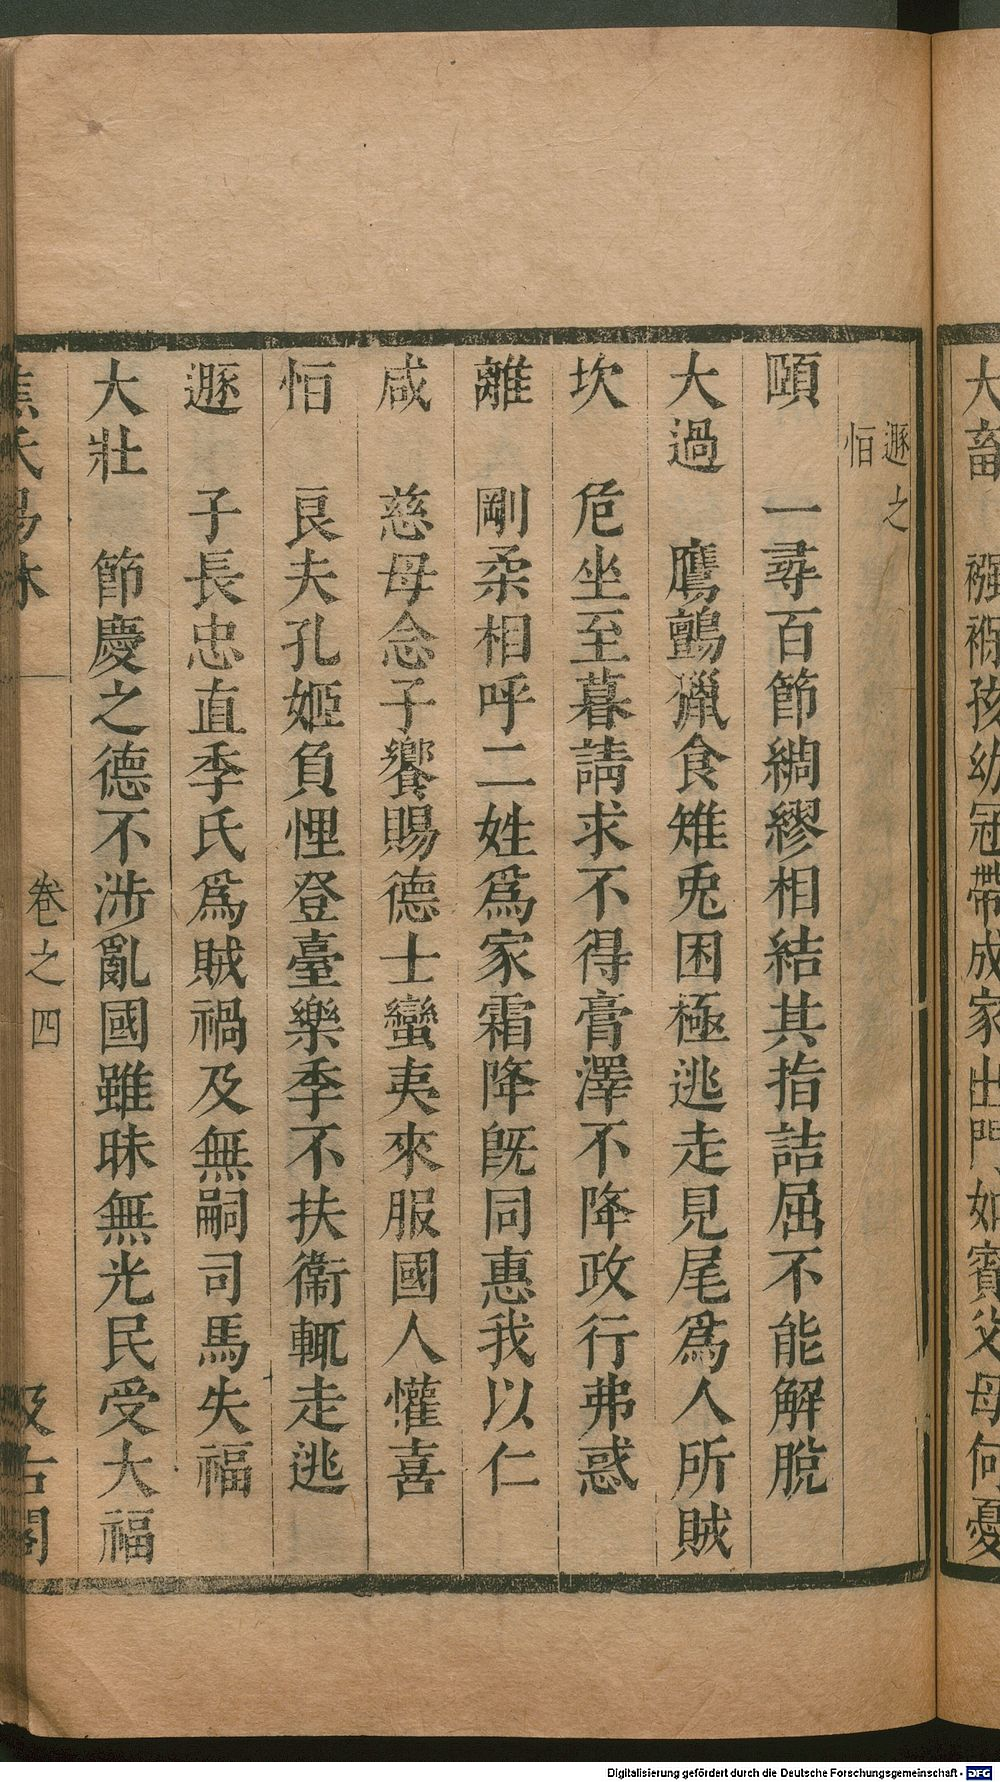 大畜 襁褓孩幼冠帶成家出門如賓父母何憂
遯之
恒
頤 一尋百節綢繆相結其指詰屈不能解脫
大過 鷹鸇獵食雉兎困極逃走見尾爲人所賊
坎 危坐至暮請求不得膏澤不降政行弗惑
離 剛柔相呼二姓爲家霜降旣同惠我以仁
咸 慈母念子饗賜德士蠻夷來服國人懽喜
恒 良夫孔姬負悝登臺樂季不扶衞輒走逃
遯 子長忠直季氏爲賊禍及無嗣司馬失福
大壯 節慶之德不涉亂國雖昧無光民受大福
焦氏易林 卷之四 汲古閣
Digitalisierung gefördert durch die Deutsche Forschungsgemeinschaft - DFG